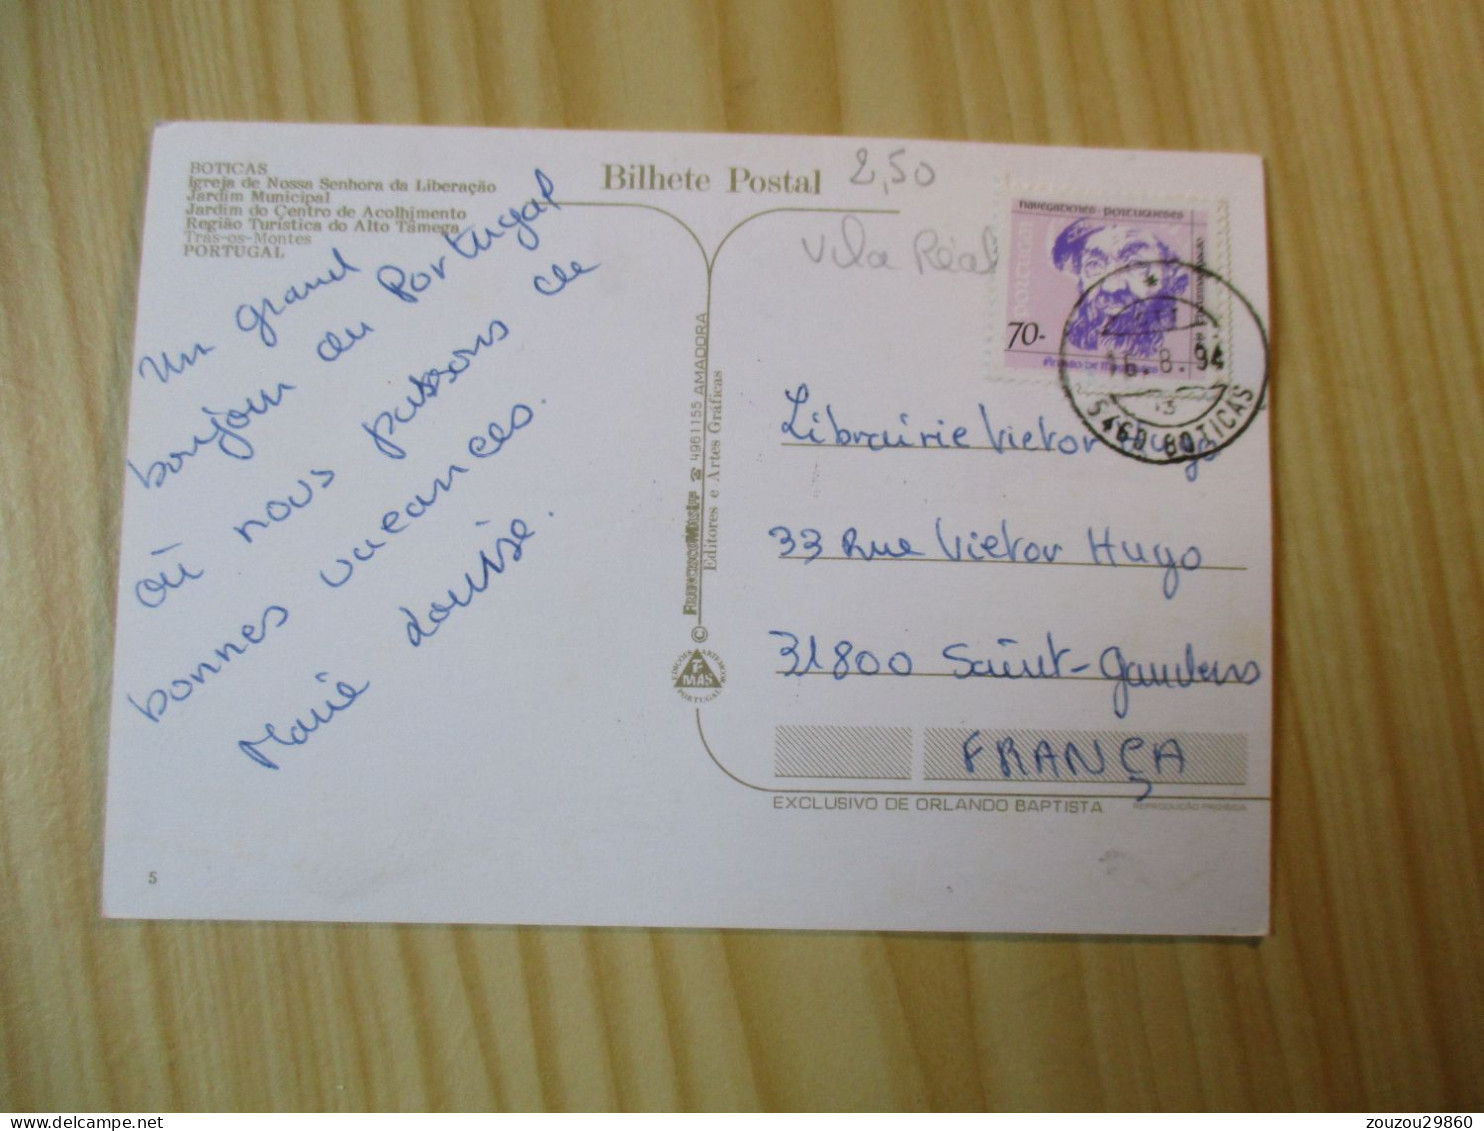 BOTICAS
Igreja de Nossa Senhora da Liberação
Jardim Municipal
Jardim do Centro de Acolhimento
Região Turística do Alto Tâmega
Trás-os-Montes
PORTUGAL
Bilhete Postal
2,50
Vila Réal
navegadores portugueses
PORTUGAL
70-
8.94
5460 BOTICAS
Un grand
bonjour du Portugal
où nous passons de
bonnes vacances.
Marie Louise.
4961155 AMADORA
Editores e Artes Gráficas
©
EDIÇÕES ARTEMCOR
MAS
PORTUGAL
Librairie Victor Hugo
33 Rue Victor Hugo
31800 Saint-Gaudens
FRANÇA
EXCLUSIVO DE ORLANDO BAPTISTA
REPRODUÇÃO PROIBIDA
5
zouzou29860